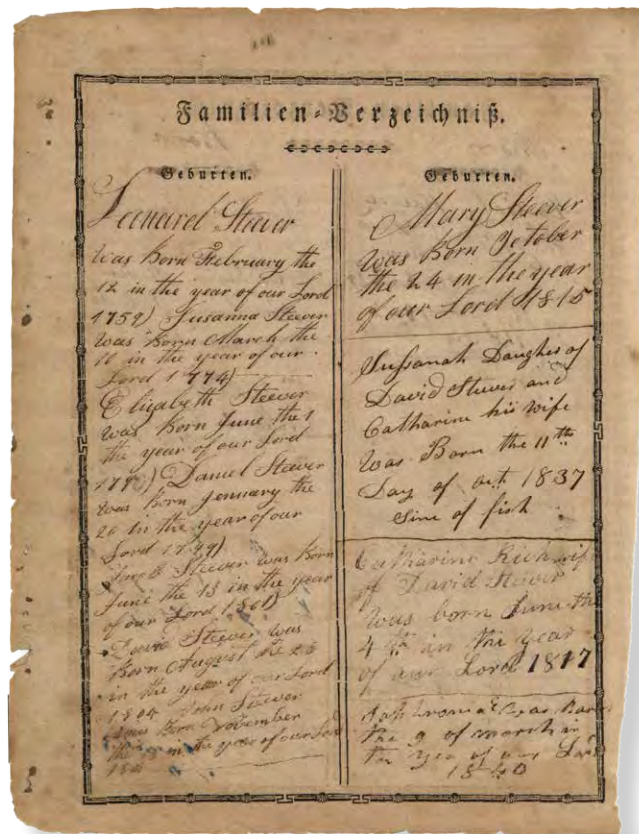 Familien-Verzeichniß.
Geburten.
Leonard Steever
Was Born February the
12 in the year of our Lord
1759) Susanna Steever
was Born March the
10 in the year of our
Lord 1774)
Elizabeth Steever
was Born June the 1
the year of our Lord
Daniel Steever
was Born January the
in the year of our
Lord 1799)
Steever was Born
June the 13 in the year
of our Lord 1801)
David Steever was
Born August the
in the year of our Lord
1804 John Steever
was Born November
the in the year of our Lord
Geburten.
Mary Steever
was Born October
the 24 in the year
of our Lord 1815
Sussanah Daugher of
David Steever and
Catharine his wife
Was Born the 11th
Day of oct 1837
Sine of fish
Catharine wife
of David Steever
was born June the
4th in the year
of our Lord 1817
was Born
the 9 of march in
the Yea of our Lord
1840